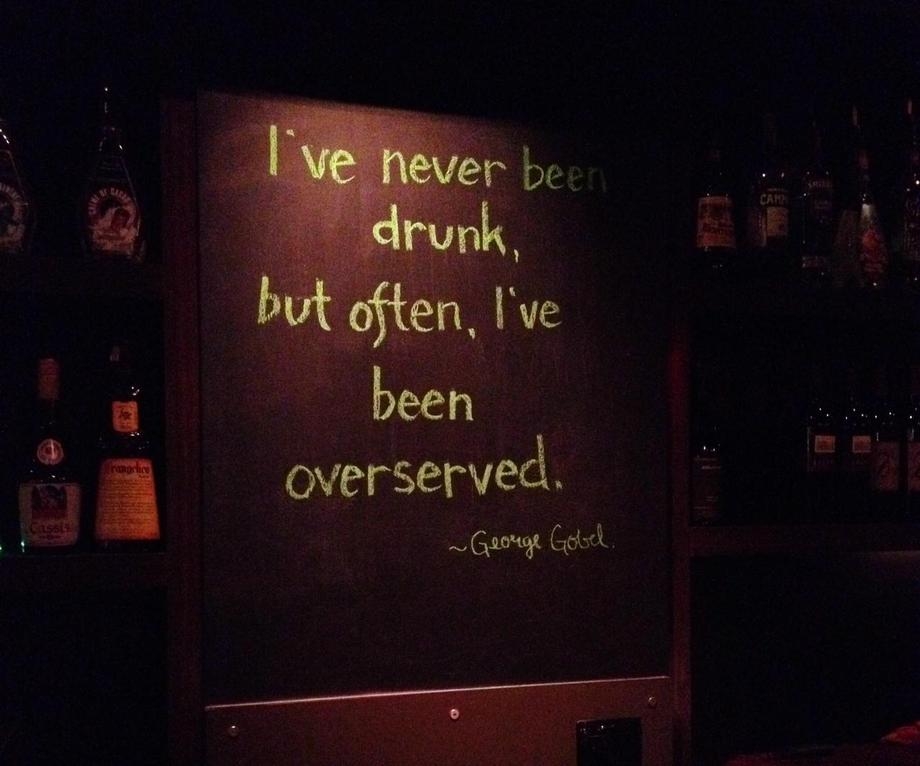 I've never been
drunk,
but often, I've
been
overserved.
~George Gobel.
Cassis
Frangelico
CAMP